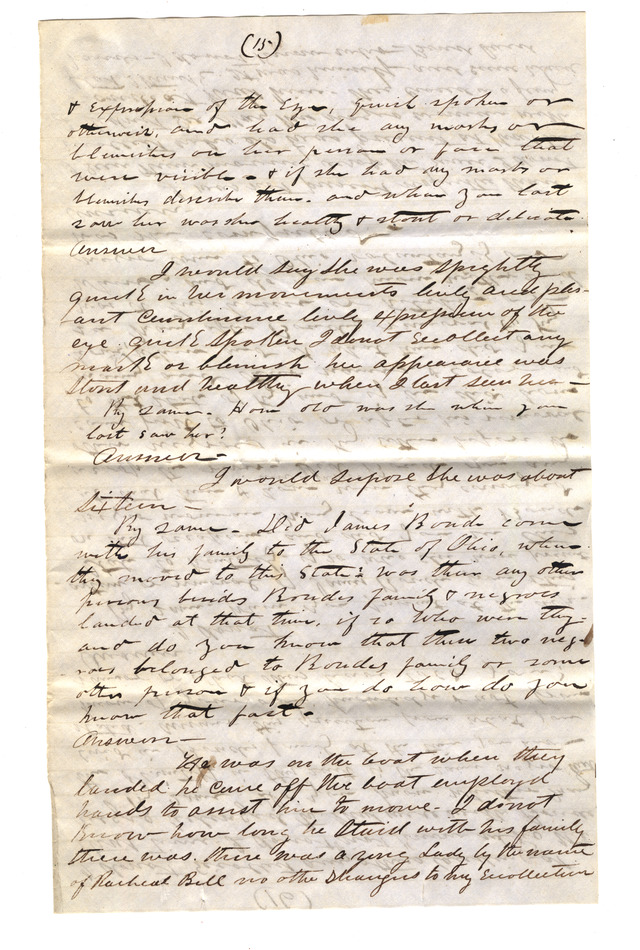 (15)
& Expression of the Eye, quick spoken or
otherwise, and had she any marks or
blemishes on her person or face that
were visible - & if she had any marks or
blemishes describe them. and when you last
saw her was she healthy & stout or delicate.
Answer
I would say she was sprightly
quick in her movements lively and ples-
ant Countinance lively expression of the
eye. quick spoken I do not Recollect any
mark or blemish her appearance was
stout and healthy when I last seen her -
By same. How old was she when you
last saw her?
Answer -
I would supose she was about
Sixteen -
By same - Did James Bonds come
with his family to the State of Ohio, when
they moved to this State? was their any other
persons besides Bondes family & negroes
landed at that time, if so who were they -
and do you know that these two neg-
roes belonged to Bondes family or some
other person & if you do how do you
know that fact -
Answer -
He was on the boat when they
landed he came off the boat employd
hands to assist him to move - I do not
know how long he staid with his family
there was. there was a young Lady by the name
of Racheal Bell no other Strangers to my Recollection